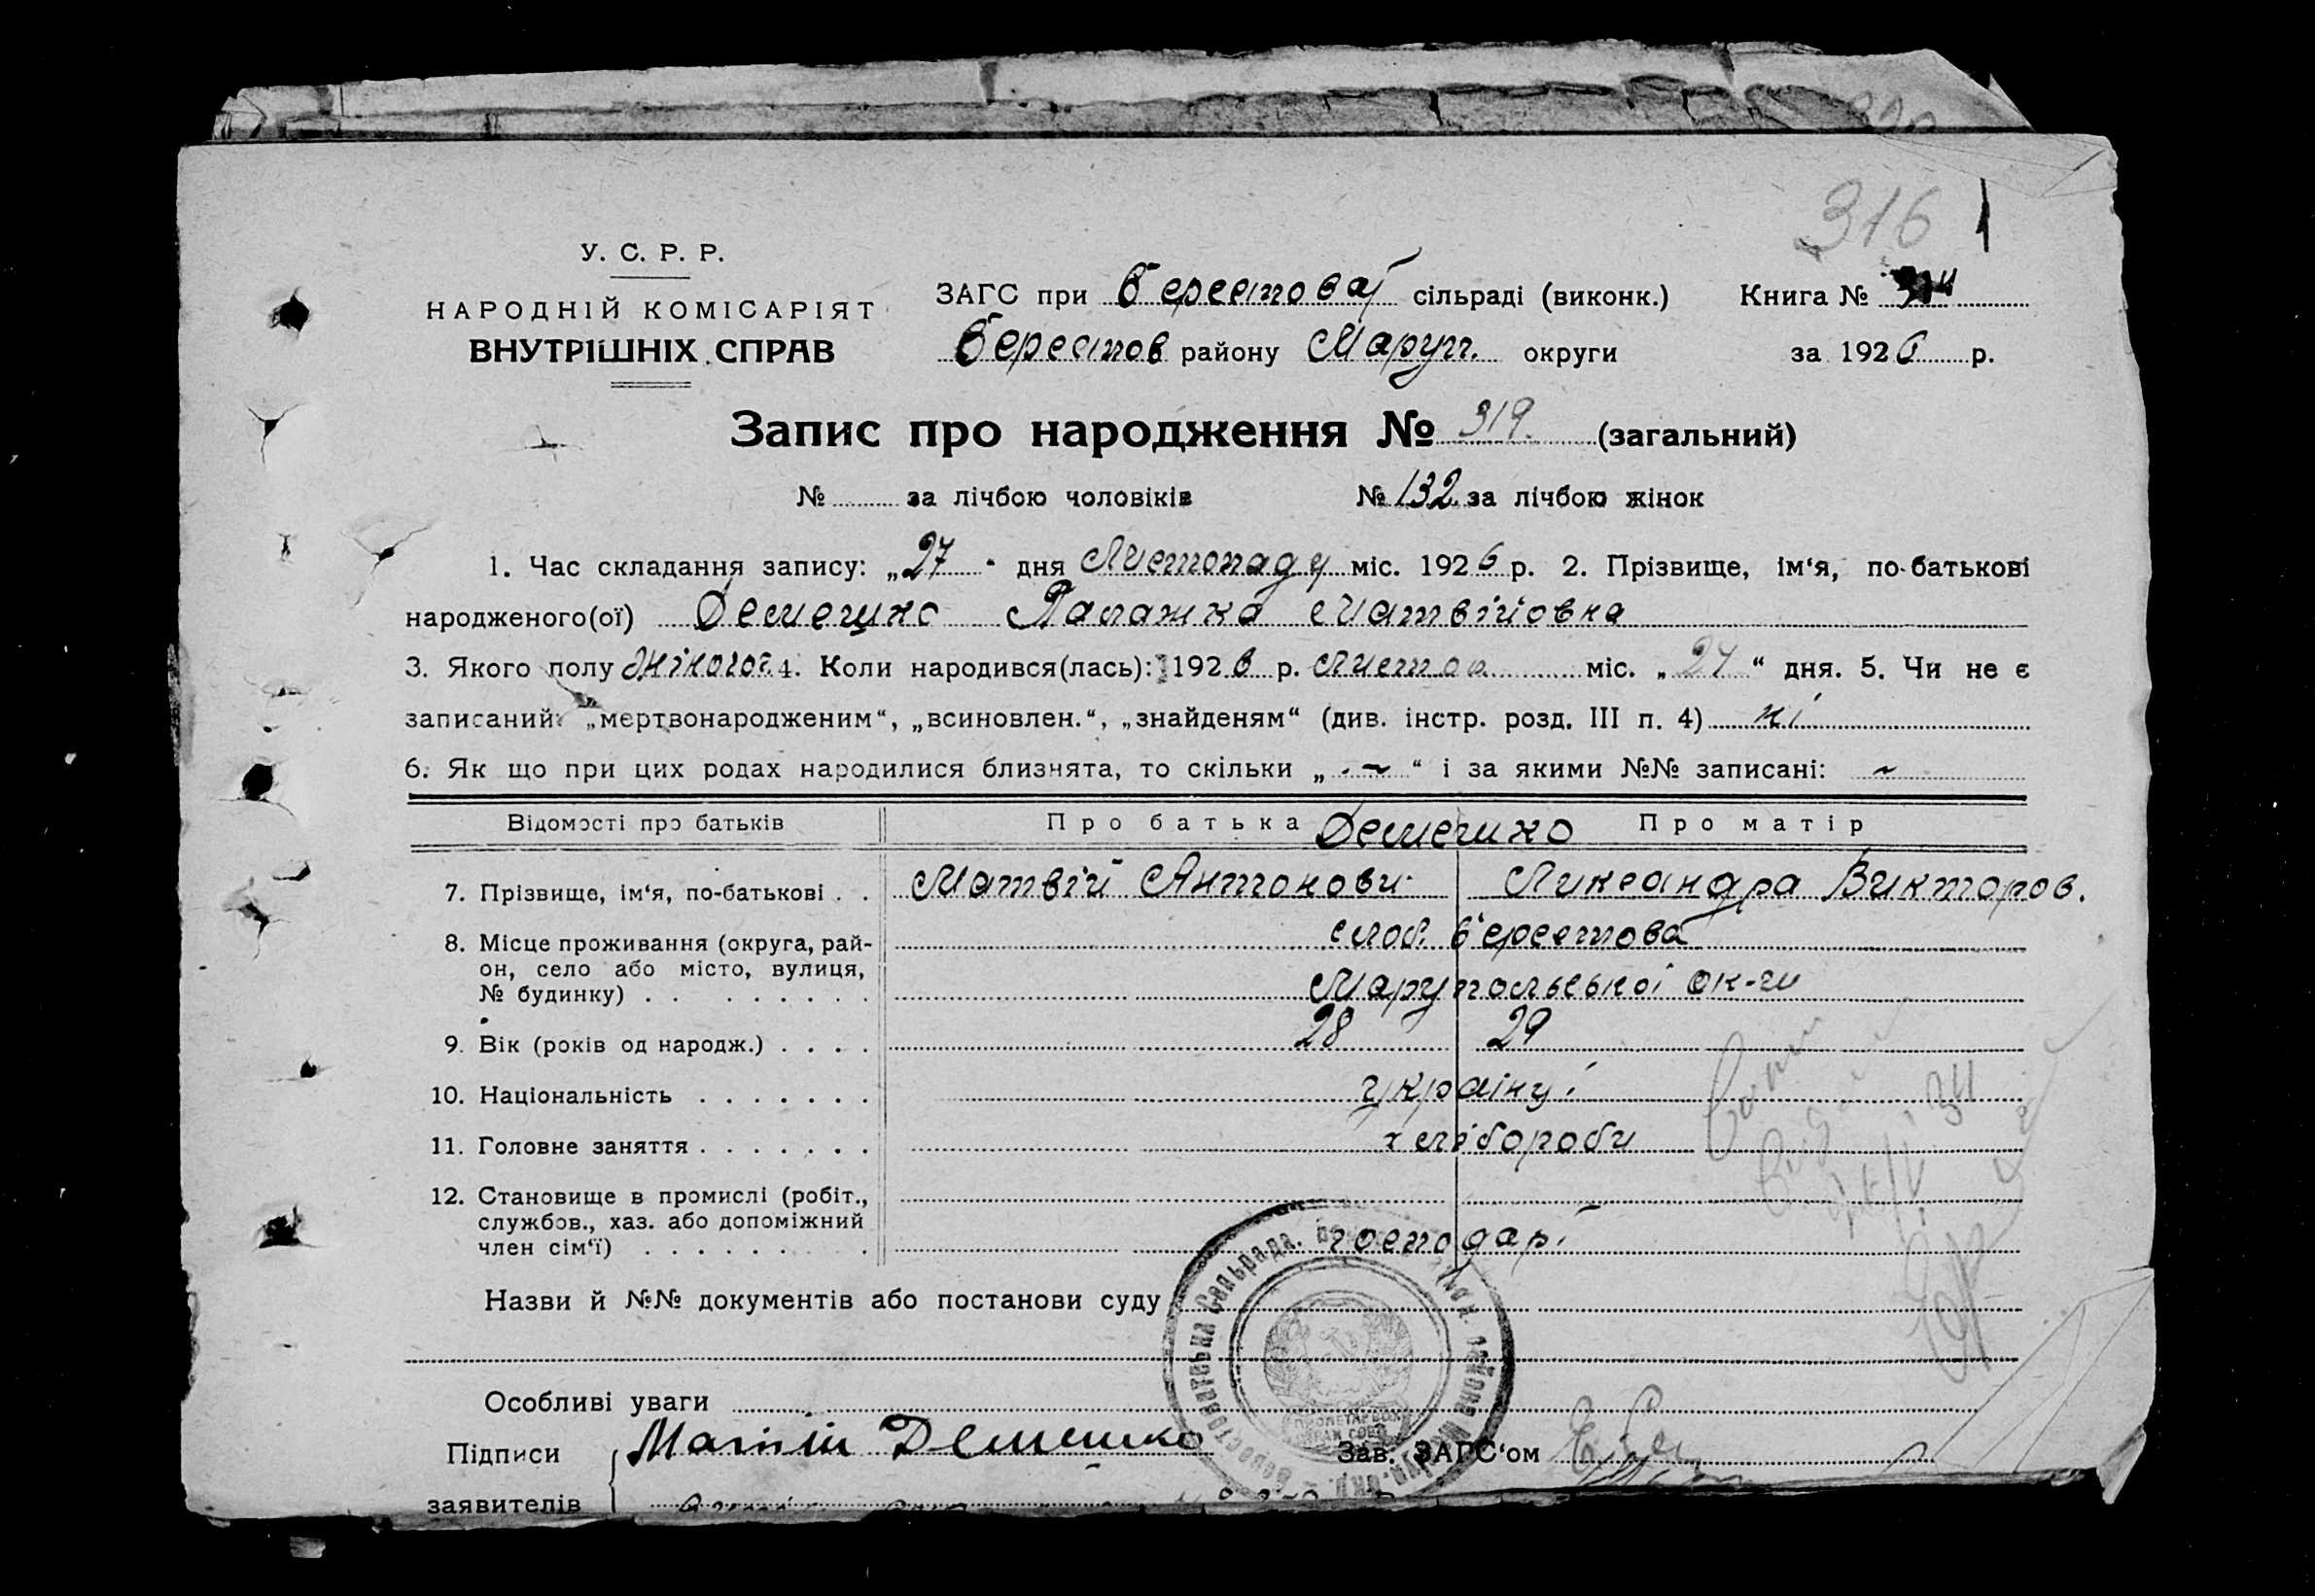 316
У. С. Р. Р.
НАРОДНІЙ КОМІСАРІЯТ
ВНУТРІШНІХ СПРАВ
ЗАГС при Берестоват сільраді (виконк.) Книга №
Берестов району Маруп. округи за 1926 р.
Запис про народження № 319. (загальний)
№ за лічбою чоловіків № 132 за лічбою жінок
1. Час складання запису: „27 " дня Листопаду міс. 1926 р. 2. Прізвище, ім'я, по-батькові
народженого(ої) Демешко Палажка Матвійовна
3. Якого полу Жіногог. 4. Коли народився(лась): 1926 р. Листоп міс. „ 24 “ дня. 5. Чи не є
записаний: „мертвонародженим“, „всиновлен.“, „знайденям“ (див. інстр. розд. III п. 4) ні
6. Як що при цих родах народилися близнята, то скільки „ - ~ “ і за якими №№ записані: ~
Відомості про батьків Про батька Демешко Про матір
7. Прізвище, ім'я, по-батькові . . Матвій Антонови Ликсандра Викторов.
8. Місце проживання (округа, рай-
он, село або місто, вулиця,
№ будинку) . . . . . . . . .
слоб. Берестоват
Марупольської ок-ги
9. Вік (років од народж.) . . . . 28 29
10. Національність . . . . . . . українці
11. Головне заняття . . . . . . . хлібороби
12. Становище в промислі (робіт.,
службов., хаз. або допоміжний
член сім'ї) . . . . . . . . .
господарі
Назви й №№ документів або постанови суду
Особливі уваги
Підписи Матвій Демешко Зав. ЗАГС'ом
заявителів